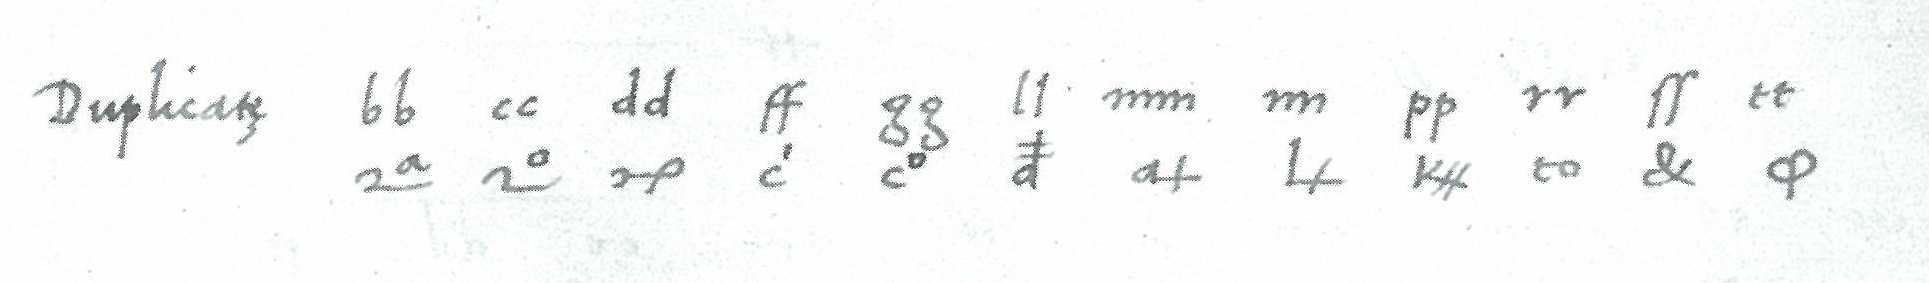 Duplicatę bb cc dd ff gg ll mm nn pp rr ſſ tt
2ª 2º c' cº a+ L+ K# to & φ